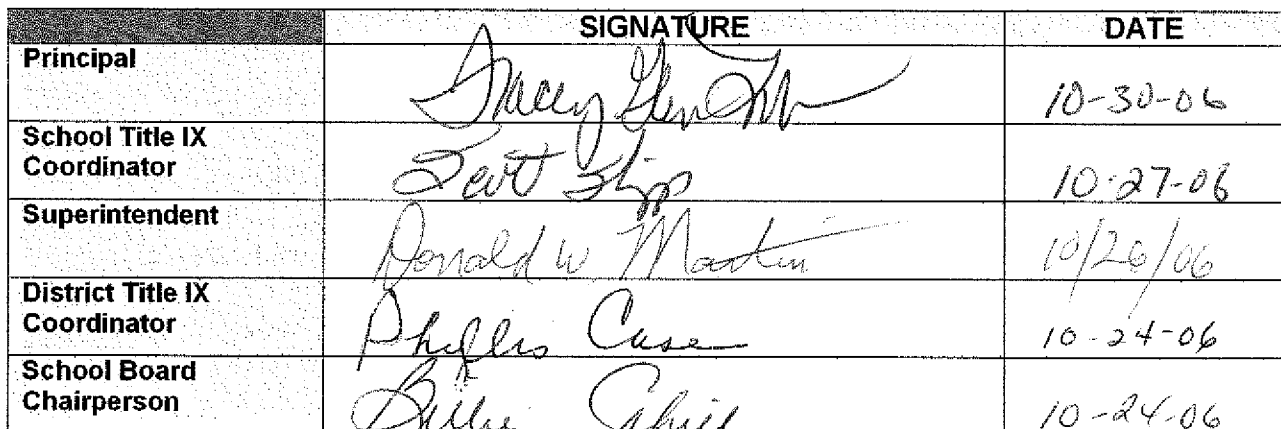 SIGNATURE DATE
Principal Tracey Glen 10-30-06
School Title IX
Coordinator Scott Shipp 10-27-06
Superintendent Donald W Martin 10/26/06
District Title IX
Coordinator Phyllis Case 10-24-06
School Board
Chairperson Billie Cahill 10-24-06